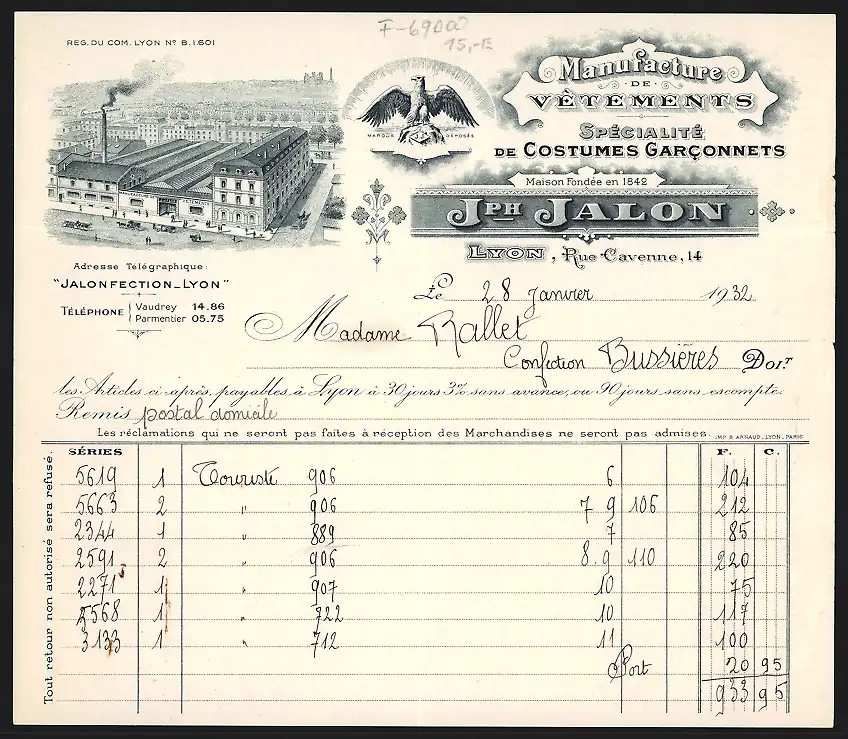 F-6900
15,-E
REG. DU COM. LYON Nº B.1.601
MARQUE DÉPOSÉE
Manufacture
DE
VÊTEMENTS
SPÉCIALITÉ
DE COSTUMES GARÇONNETS
Maison Fondée en 1842
JPH JALON
LYON, Rue Cavenne, 14
Adresse Télégraphique:
"JALONFECTION_LYON"
TÉLÉPHONE Vaudrey 14.86
Parmentier 05.75
Le 28 Janvier 1932
Madame Rallet
Confection Bussières DOIT
les Articles ci-après, payables à Lyon à 30 jours 3% sans avance, ou 90 jours sans escompte.
Remis postal domicile
Les réclamations qui ne seront pas faites à réception des Marchandises ne seront pas admises. IMP. B. ARNAUD_LYON_PARIS
Tout retour non autorisé sera refusé.
SÉRIES F. C.
5619 1 Touriste 906 6 104
5663 2 " 906 7 9 106 212
2344 1 " 889 7 85
2591 2 " 906 8.9 110 220
2271 1 " 907 10 75
5568 1 " 722 10 117
3133 1 " 712 11 100
Port 20 95
933 95